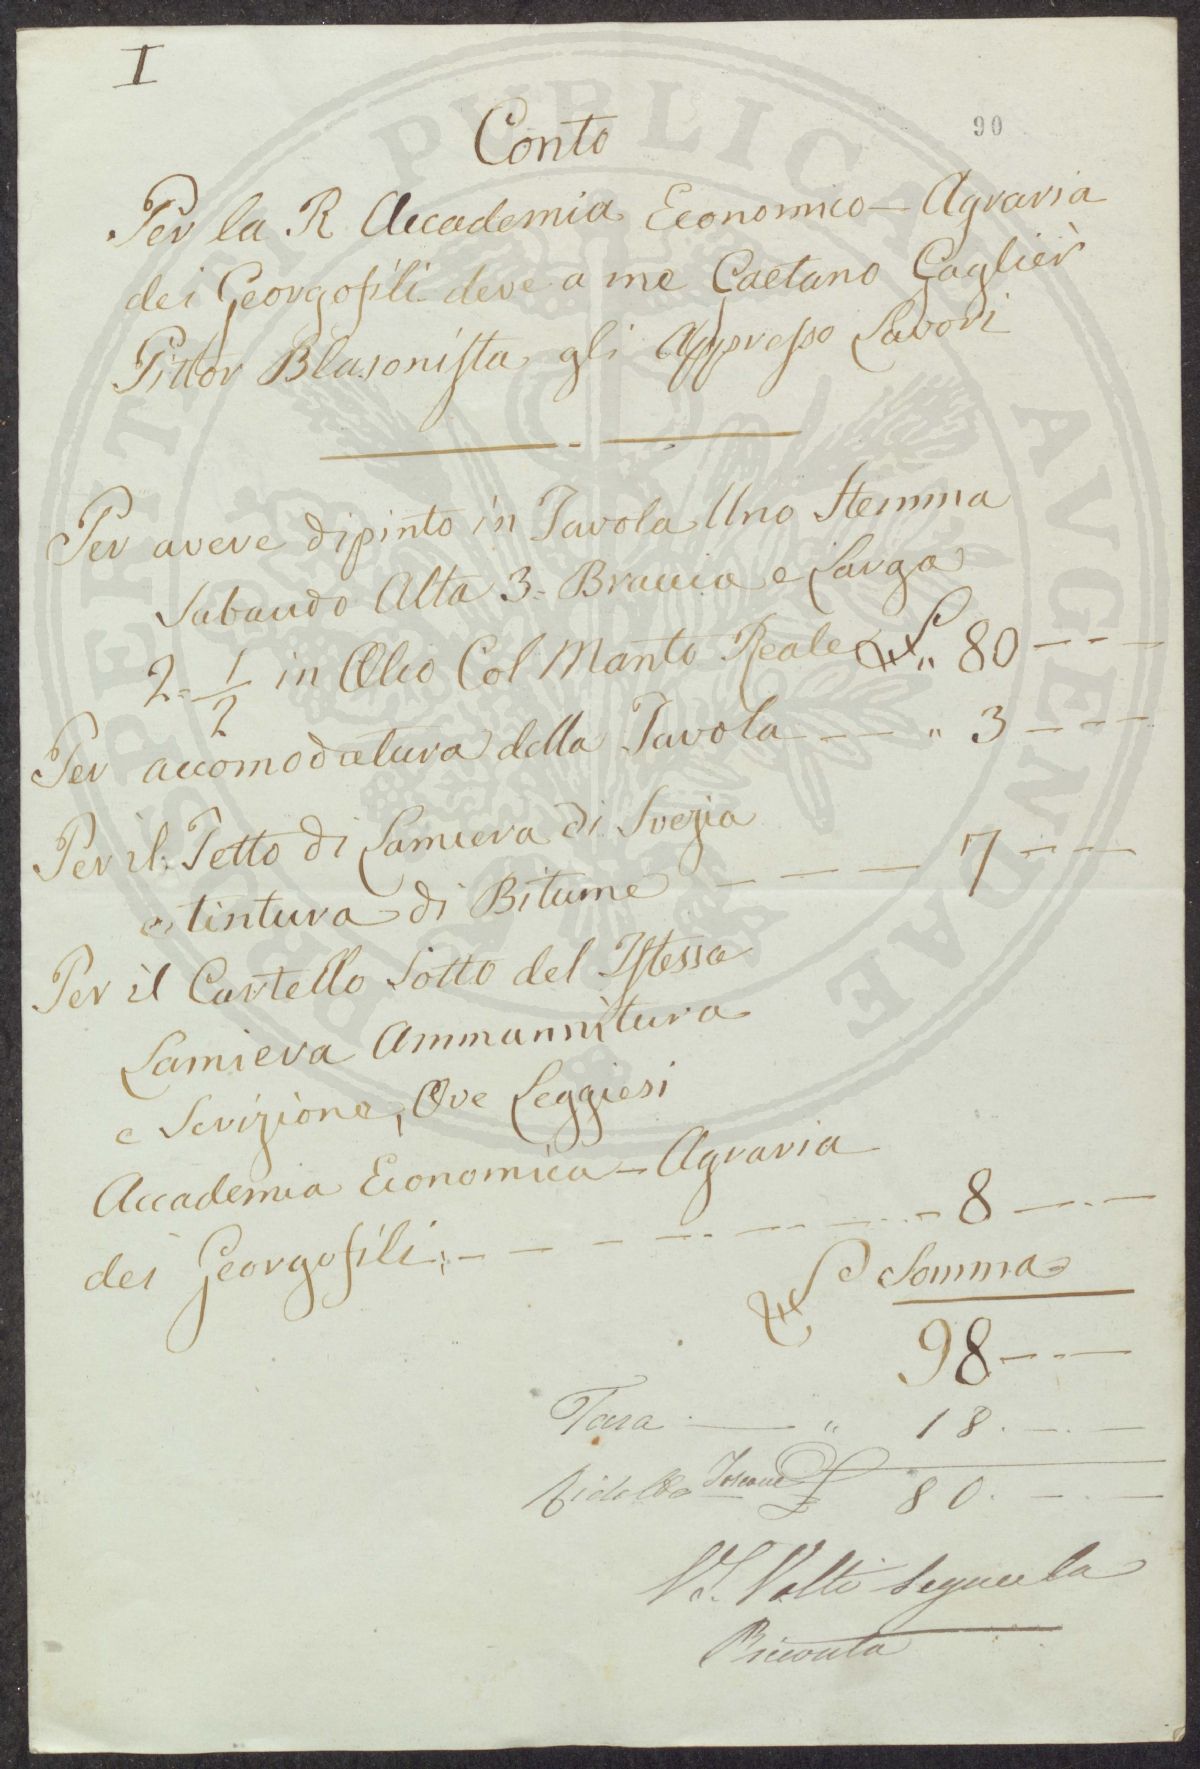 I
90
Conto
Per la R Accademia Economico - Agraria
dei Georgofili deve a me Gaetano Gaglier
Pittor Blasonista gli Appresso Lavori
Per avere dipinto in Tavola Uno Stemma
Sabaudo Alta 3= Braccia e Larga
2= 1/2 in Olio Col Manto Reale £ „ 80 - - -
Per accomodatura della Tavola - - - „ 3 - - -
Per il Tetto di Lamiera di Svezia
e tintura di Bitume - - - - 7 - - -
Per il Cartello Sotto del Istessa
Lamiera Ammannitura
e Scrizione, Ove Leggiesi
Accademia Economica - Agraria
dei Georgofili; - - - - - - - - 8 - - -
£ Somma
98 - - -
Tara - „ 18. - . -
Ridotto Toscane £ 80. - . -
V.S. Volti segue la
Ricevuta
PROSPERITATI PUBLICAE AVGENDAE